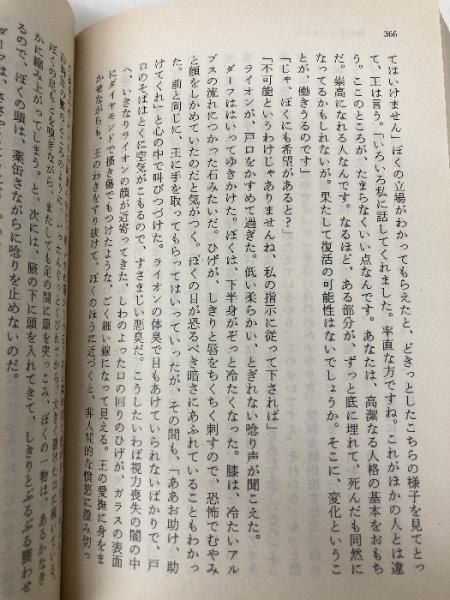 366
てはいけません」ぼくの立場がわかってもらえたと、どきっとしたこちらの様子を見てとっ
て、王は言う。「いろいろ私に話してくれました。率直な方ですね。これがほかの人とは違
う。ここのところが、たまらなくいい点なんです。あなたは、高潔なる人格の基本をおもち
だ。崇高になれる人なんです。なるほど、ある部分が、ずっと底に埋れて、死んだも同然に
なってるかもしれないが。果たして復活の可能性はないでしょうか。そこに、変化というこ
とが、働きうるのです」
「じゃ、ぼくにも希望があると？」
「不可能というわけじゃありませんね、私の指示に従って下されば」
ライオンが、戸口をかすめて過ぎた。低い柔らかい、とぎれない唸り声が聞こえた。
ダーフははいってゆきかけた。ぼくは、下半身がぞっと冷たくなった。膝は、冷たいアル
プスの流れにつかった石みたいだ。ひげが、しきりと唇をちくちく刺すので、恐怖でむやみ
と顔をしかめていたのだと気がつく。ぼくの目が恐るべき暗さにあふれていることもわかっ
た。前と同じに、王に手を取ってもらってはいっていったが、その間も、「ああお助け、助
けてくれ」と心の中で叫びつづけた。ライオンの体臭で目もあけていられないばかりで、戸
口のそばはとくに空気がこもるので、すさまじい悪臭だ。こうしたいわば視力喪失の闇の中
へ、いきなりライオンの顔が近寄ってきた、しわのよった口の回りのひげが、ガラスの表面
にダイヤモンドで搔き傷でもつけたような、ごく細い線になって見える。王の愛撫に身をま
かせながらも、王のわきをすり抜けて、ぼくのほうに近づくと、非人間的な憤怒に澄み切っ
ぼくの
またしても足の間に頭を突っこみ、ぼくの一物は、あるかなき
かに縮み上がってしまう。と、次には、腋の下に頭を入れてきて、しきりとぶるぶる震わせ
るので、ぼくの頭は、薬缶さながらに唸りを止めないのだ。
ダーフは、